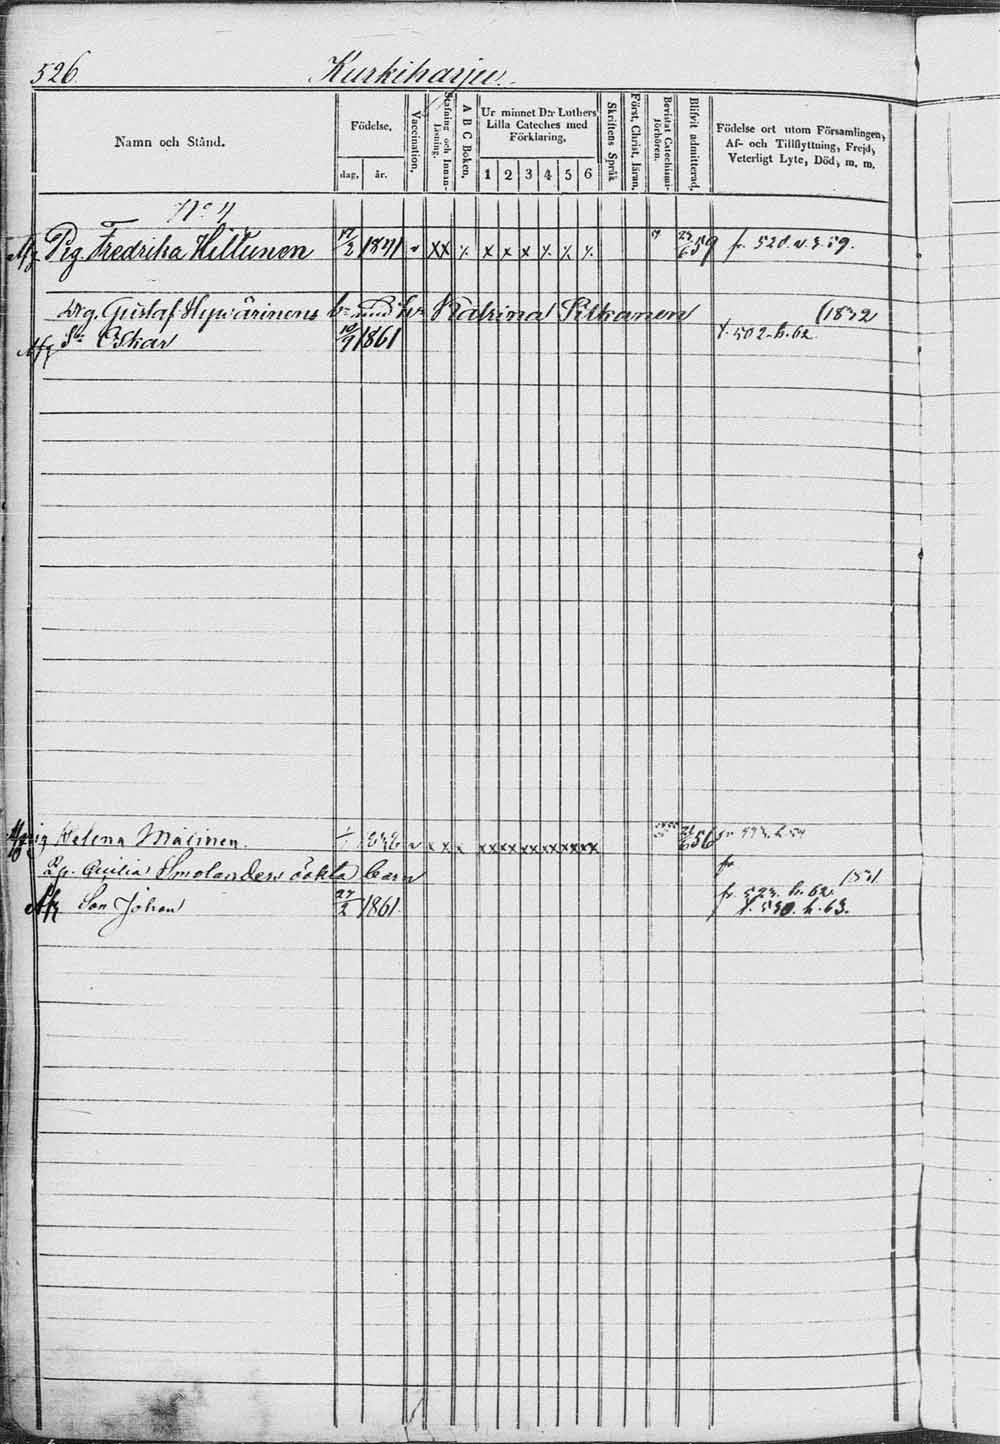 526. Kurkiharju.
Namn och Stånd.
Födelse,
dag. år.
Vaccination,
Stafning och Innan-Läsning.
A B C Boken,
Ur minnet D:r Luthers Lilla Cateches med Förklaring,
1 2 3 4 5 6
Skriftens Språk
Först. Christ. läran,
Bevistat Catechismi-förhören.
Blifvit admitterad,
Födelse ort utom Församlingen,
Af- och Tillflyttning, Frejd,
Veterligt Lyte, Död, m. m.
No 4
Pig. Fredrika Hiltunen 17/2 1841 v x x x x x x x x 59 fr. 528. v. 3. 59.
Drg. Gustaf Hyvärinens Katrina Silkanen (1832
Sn Oskar 10/9 1861 t. 502. h. 62.
Pig Helena Malinen. 1/1 v x x x xx xx xx xx xx xx 56
Cecilia Smolanders oäkta barn
Son Johan 27/2 1861. fr. 523. h. 62.
t. 530. h. 63.